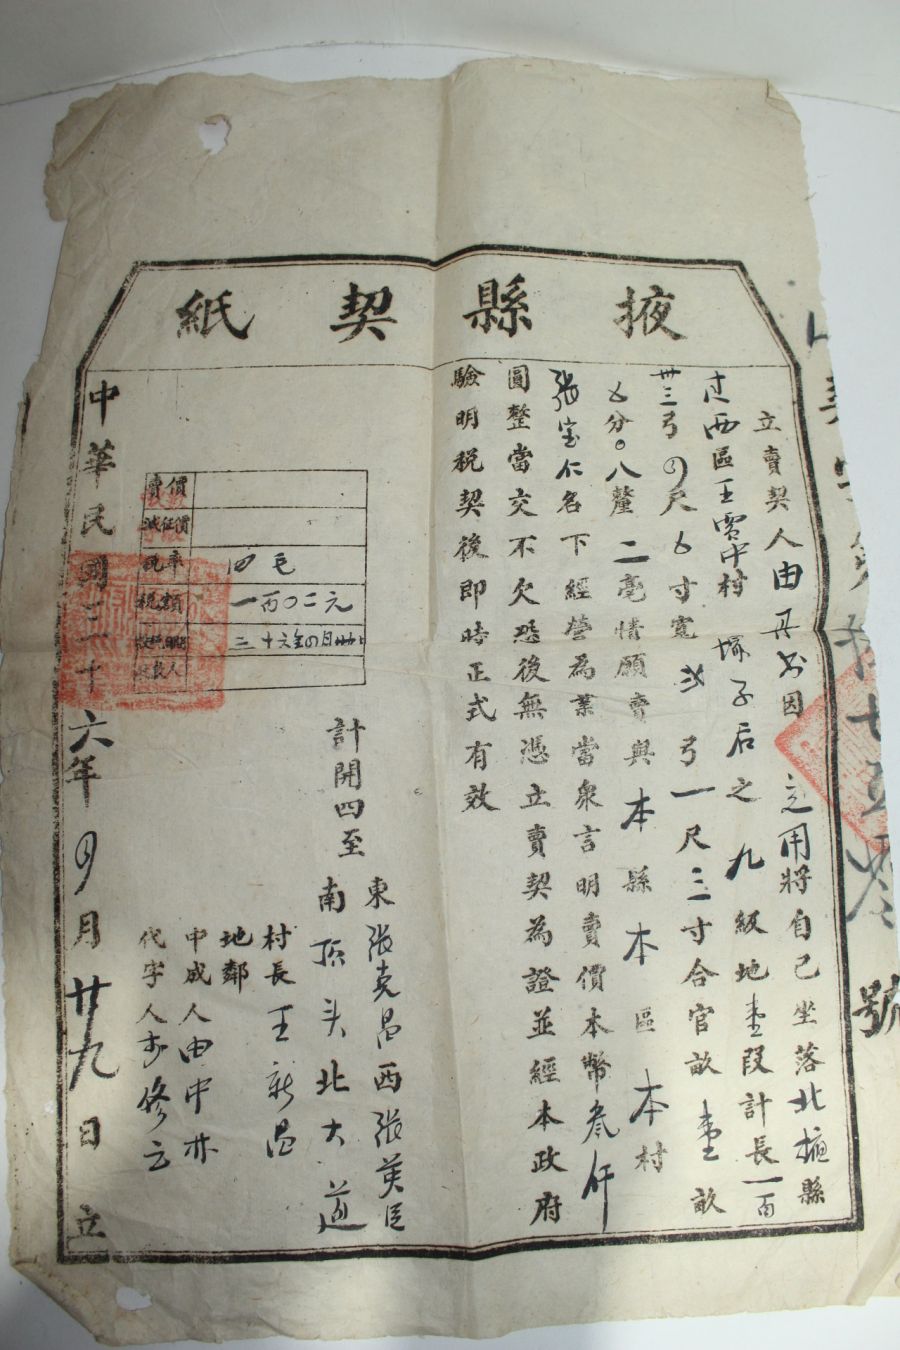 掖縣契紙
立賣契人由丹 因 之用將自己坐落北掖縣
过西區王賈中村 子后之九級地壹段計長一百
卅三弓四尺五寸寬弍弓一尺三寸合官畝壹畝
五分〇八釐二亳情願賣與本縣本區本村
張宝仁名下經營為業當衆言明賣價本幣叁仟
圓整當交不欠恐後無憑立賣契為證並經本政府
驗明税契後即時正式有效
計開四至
東張克昌西張英臣
南頂头北大道
村長王新昌
地鄰
中成人由中亦
代字人 修云
賣價
減征價
税率 四毛
税額 一百〇二元
三十六年四月
中華民國三十六年四月廿九日立
號